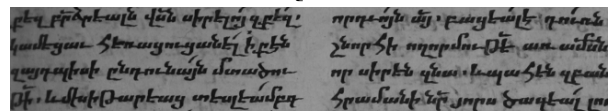 քեզ բրձրեալն վան սիրելոյ զքեզ.
կամեցաւ հեռացուցանել ի քէն
զայդպիսի ընդունայն մտածու
թի. և մխիթարեաց տեսլեամբդ
որդւոյն այ. բացեալ է դուռն
շնորհի ողորմութե առ ամենն
որ սիրեն զնա. և պահեն զբան
հրամանի նր յորս ծագեալ լոյ